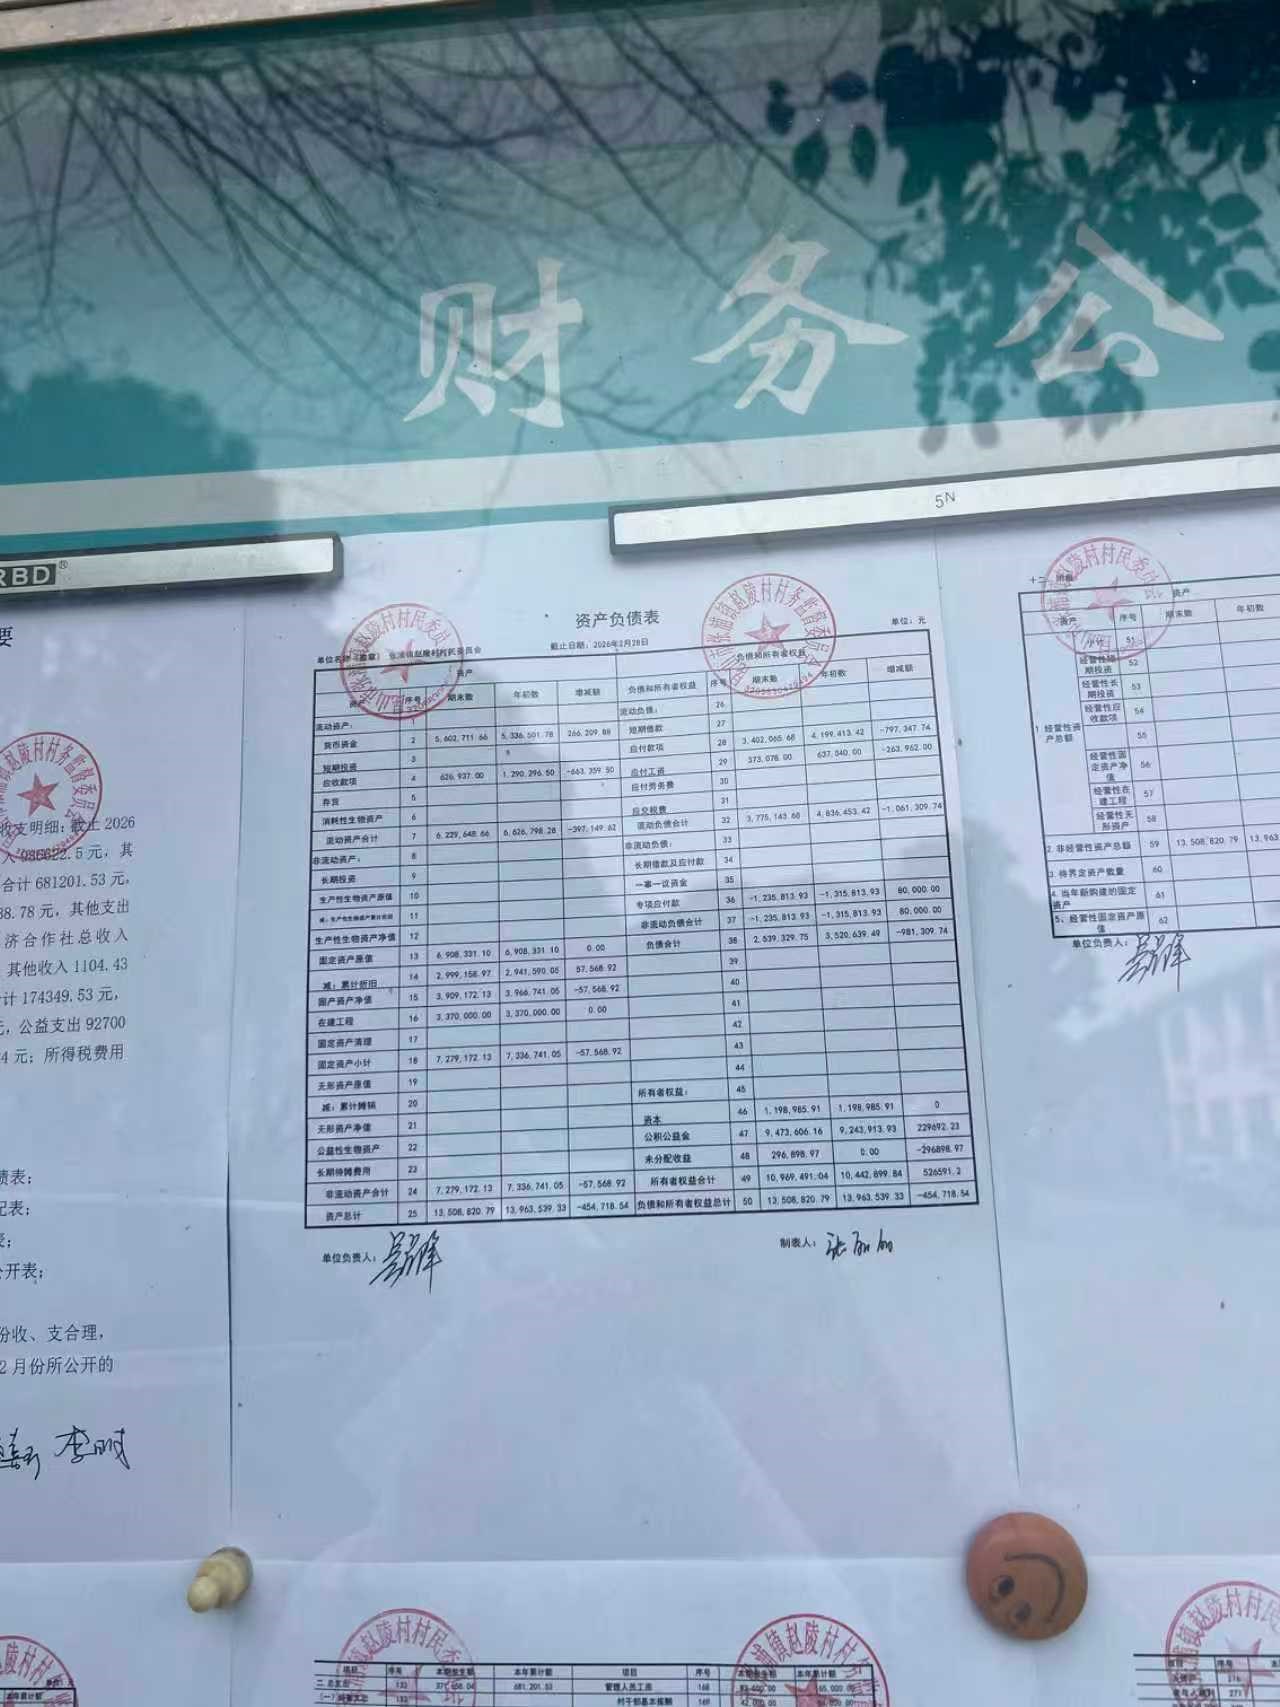 财务公
RBD®
5N
要
收支明细：截止2026
合计681201.53元，
38.78元，其他支出
济合作社总收入
其他收入1104.43
计174349.53元，
元，公益支出92700
4元；所得税费用
债表；
配表；
表；
公开表；
份收、支合理，
2月份所公开的
李明
资产负债表
单位名称（盖章） 张浦镇赵陵村村民委员会 截止日期：2026年2月28日 单位：元
资产 负债和所有者权益
资产 序号 期末数 年初数 增减额 负债和所有者权益 序号 期末数 年初数 增减额
流动资产： 1 流动负债： 26
货币资金 2 5,602,711.66 5,336,501.78 266,209.88 短期借款 27
短期投资 3 应付款项 28 3,402,065.68 4,199,413.42 -797,347.74
应收款项 4 626,937.00 1,290,296.50 -663,359.50 应付工资 29 373,078.00 637,040.00 -263,962.00
存货 5 应付劳务费 30
消耗性生物资产 6 应交税费 31
流动资产合计 7 6,229,648.66 6,626,798.28 -397,149.62 流动负债合计 32 3,775,143.68 4,836,453.42 -1,061,309.74
非流动资产： 8 非流动负债： 33
长期投资 9 长期借款及应付款 34
生产性生物资产原值 10 一事一议资金 35
减：生产性生物资产累计折旧 11 专项应付款 36 -1,235,813.93 -1,315,813.93 80,000.00
生产性生物资产净值 12 非流动负债合计 37 -1,235,813.93 -1,315,813.93 80,000.00
固定资产原值 13 6,908,331.10 6,908,331.10 0.00 负债合计 38 2,539,329.75 3,520,639.49 -981,309.74
减：累计折旧 14 2,999,158.97 2,941,590.05 57,568.92 39
固产资产净值 15 3,909,172.13 3,966,741.05 -57,568.92 40
在建工程 16 3,370,000.00 3,370,000.00 0.00 41
固定资产清理 17 42
固定资产小计 18 7,279,172.13 7,336,741.05 -57,568.92 43
无形资产原值 19 44
减：累计摊销 20 所有者权益： 45
无形资产净值 21 资本 46 1,198,985.91 1,198,985.91 0
公益性生物资产 22 公积公益金 47 9,473,606.16 9,243,913.93 229692.23
长期待摊费用 23 未分配收益 48 296,898.97 0.00 -296898.97
非流动资产合计 24 7,279,172.13 7,336,741.05 -57,568.92 所有者权益合计 49 10,969,491.04 10,442,899.84 526591.2
资产总计 25 13,508,820.79 13,963,539.33 -454,718.54 负债和所有者权益总计 50 13,508,820.79 13,963,539.33 -454,718.54
单位负责人： 制表人：
资产
资产 序号 期末数 年初数
1.经营性资产总额
小计 51
经营性短期投资 52
经营性长期投资 53
经营性应收款项 54
55
经营性固定资产净值 56
经营性在建工程 57
经营性无形资产 58
2.非经营性资产总额 59 13,508,820.79 13,963
3.待界定资产数量 60
4.当年新购建的固定资产 61
5.经营性固定资产原值 62
单位负责人：
项目 序号 本期发生额 本年累计额 项目 序号 本期发生额 本年累计额
二.总支出 132 681,201.53 管理人员工资 168
村干部基本报酬 169